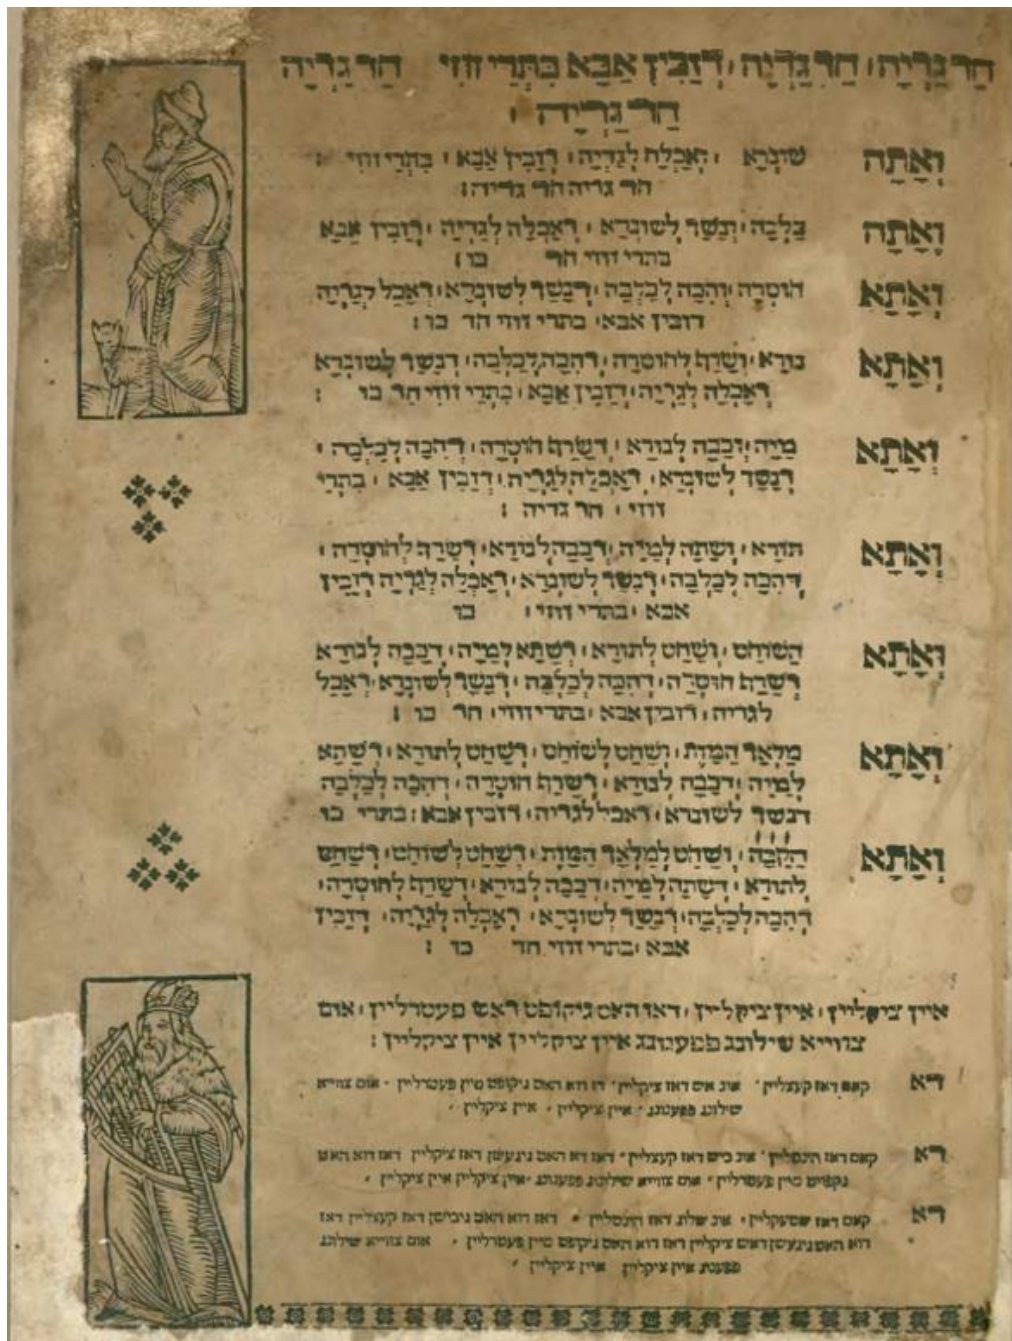 חַד גַּדְיָה׃ חַד גַּדְיָה׃ דְזַבִּין אַבָּא בִּתְרֵי זוּזֵי חַד גַּדְיָה
חַד גַּדְיָה׃
וְאָתָה שׁוּנְרָא ׃ וְאָכְלָה לְגַדְיָה׃ דְזַבִּין אַבָּא ׃ בִּתְרֵי זוּזֵי ׃
חד גדיה חד גדיה׃
וְאָתָה כַּלְבָּה׃ וְנָשַׁךְ לְשׁוּנְרָא ׃ דְאָכְלָה לְגַדְיָה ׃ דְזַבִּין אַבָּא
בתרי זוזי חד כו׃
וְאָתָא חוּטְרָה׃ וְהִכָּה לְכַלְבָּה׃ דְנָשַׁךְ לְשׁוּנְרָא׃ דְאָכַל לְגַדְיָה
דזבין אבא׃ בתרי זוזי חד כו׃
וְאָתָא נוּרָא׃ וְשָׂרַף לְחוּטְרָה׃ דְהִכָּה לְכַלְבָּה׃ דְנָשַׁךְ לְשׁוּנְרָא
דְאָכְלָה לְגַדְיָה׃ דְזַבִּין אַבָּא ׃ בִּתְרֵי זוּזֵי חַד כו׃
וְאָתָא מַיָּה׃ וְכָבָה לְנוּרָא ׃ דְשָׂרַף חוּטְרָה׃ דְהִכָּה לְכַלְבָּה ׃
דְנָשַׁךְ לְשׁוּנְרָא׃ דְאָכְלָה לְגַדְיָה׃ דְזַבִּין אַבָּא ׃ בִּתְרֵי
זוזי ׃ חד גדיה ׃
וְאָתָא תוֹרָא ׃ וְשָׁתָה לְמַיָּה׃ דְכָבָה לְנוּרָא׃ דְשָׂרַף לְחוּטְרָה ׃
דְהִכָּה לְכַלְבָּה׃ דְנָשַׁךְ לְשׁוּנְרָא׃ דְאָכְלָה לְגַדְיָה דְזַבִּין
אבא ׃בתרי זוזי׃ כו
וְאָתָא הַשּׁוֹחֵט ׃ וְשָׁחַט לְתוֹרָא ׃ דְשָׁתָא לְמַיָּה׃ דְכָבָה לְנוּרָא
דְשָׂרַף חוּטְרָה׃ דְהִכָּה לְכַלְבָּה ׃ דְנָשַׁךְ לְשׁוּנְרָא׃ דְאָכַל
לגדיה׃ דזבין אבא ׃בתרי זוזי׃ חד כו ׃
וְאָתָא מַלְאַךְ הַמָּוֶת ׃ וְשָׁחַט לְשׁוֹחֵט ׃ דְשָׁחַט לְתוֹרָא ׃ דְשָׁתָא
לְמַיָּה ׃ דְכָבָה לְנוּרָא ׃ דְשָׂרַף חוּטְרָה ׃ דְהִכָּה לְכַלְבָּה
דנשך לשונרא׃ דאכל לגדיה׃ דזבין אבא׃ בתרי כו
וְאָתָא הַקָּבָּה ׃ וְשָׁחַט לְמַלְאַךְ הַמָּוֶת ׃ דְשָׁחַט לְשׁוֹחֵט׃ דְשָׁחַט
לְתוֹרָא ׃ דְשָׁתָה לְמַיָּה׃ דְכָבָה לְנוּרָא׃ דְשָׂרַף לְחוּטְרָה׃
דְהִכָּה לְכַלְבָּה׃ דְנָשַׁךְ לְשׁוּנְרָא ׃ דְאָכְלָה לְגַדְיָה׃ דְזַבִּין
אבא ׃בתרי זוזי חד כו ׃
איין ציקליין ׃ איין ציקליין ׃ דאז האט גיקופט דאש פעטרליין ׃ אום
צווייא שילונג פפענונג איין ציקליין איין ציקליין ׃
דא קאם דאז קעצליין ׃ אונ אס דאז ציקליין׳ דז דא האט גיקופט מיין פעטרליין ׃ אום צווייא
שילונג פפענונג ׃ איין ציקליין ׃ איין ציקליין ׃
דא קאם דאז הונטליין׳ אונ ביס דאז קעצליין׃ דאז דא האט גיגעשן דאז ציקליין דאז דוא האט
גקופט מיין פעטרליין׃ אום צווייא שילונג פפענונג ׃איין ציקליין איין ציקליין ׃
דא קאם דאז שטעקליין ׃ אונ שלוג דאז הונטליין ׃ דאז דוא האט גיבישן דאז קעצליין דאז
דוא האט גיגעשן דאש ציקליין דאז דוא האט גיקופט מיין פעטרליין ׃ אום צווייא שילונג
פפענונג איין ציקליין איין ציקליין ׃